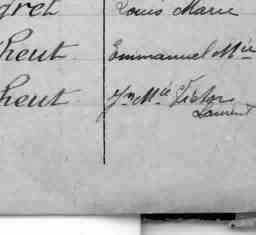 gret Louis Marie
heut Emmanuel Mie
heut Jn Mie Victor
Laurent